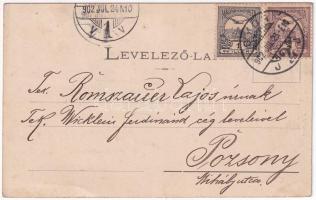 902 JUL. 24 N10
V 1 V
LEVELEZŐ-LA
Tek. Römszauer Lajos úrnak
Tek. Wicklein Ferdinánd cég leveleivel
Pozsony
Mihályutca